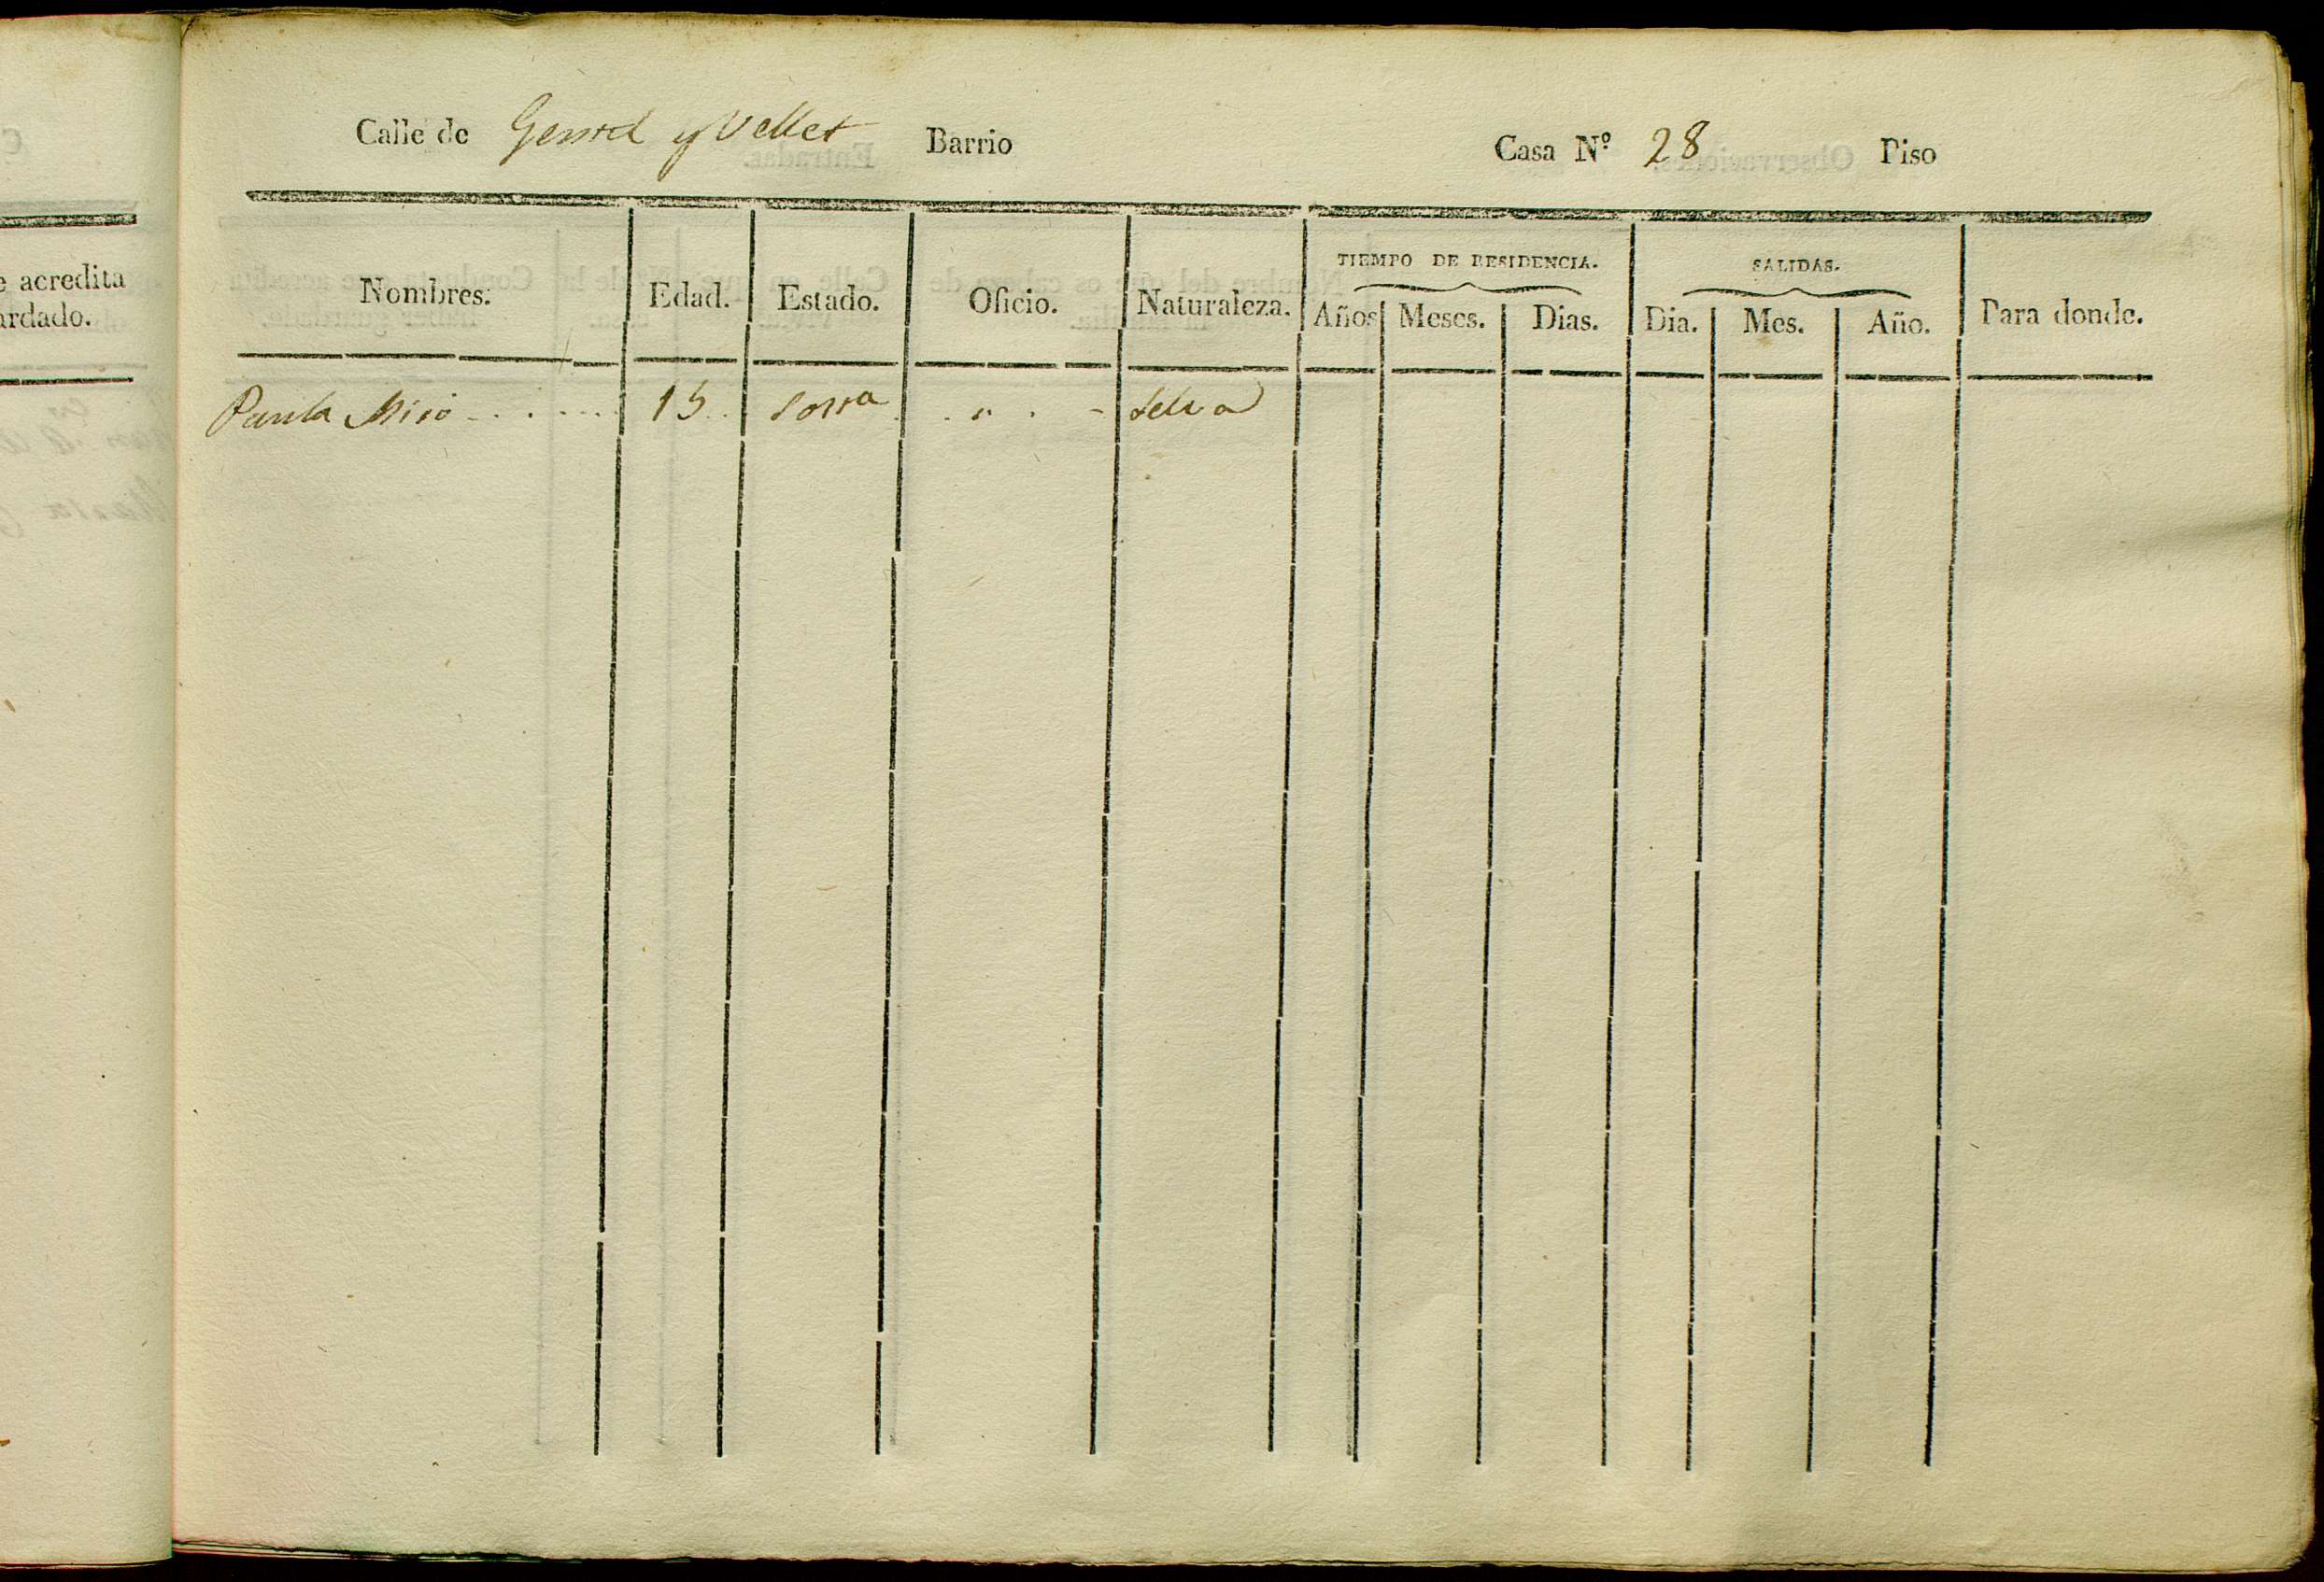 e acredita
ardado.
Calle de y Vellet Barrio Casa Nº 28 Piso
Nombres. Edad. Estado. Oficio. Naturaleza. TIEMPO DE RESIDENCIA. SALIDAS. Para donde.
Años Meses. Dias. Dia. Mes. Año.
Paula Miró 15 " Selva